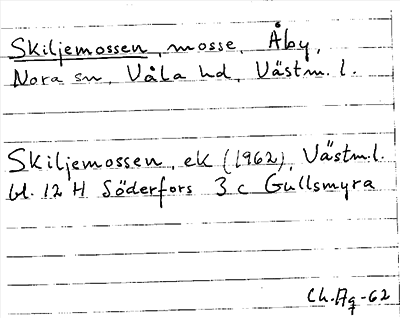 Skiljemossen, mosse, Åby,
Nora sn, Våla hd, Västm. l.
Skiljemossen, ek (1962), Västm. l.
bl. 12 H Söderfors 3 c Gullsmyra
Ch. Ag -62